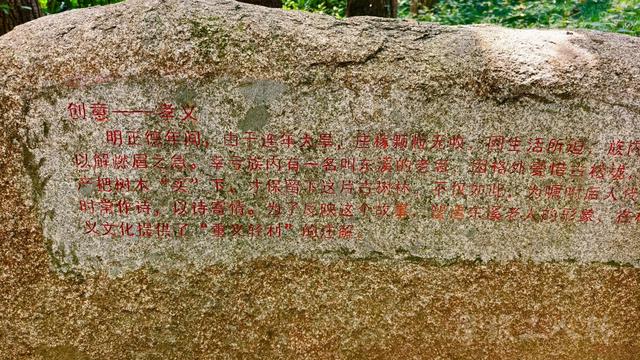 创意——孝义
明正德年间，由于连年大旱，庄稼颗粒无收，因生活所迫，族内
以解燃眉之急。幸亏族内有一名叫东溪的老翁，因格外爱惜古樟
产把树木“买”下，才保留下这片古树林。不仅如此，为嘱咐后人
时常作诗，以诗寄情。为了反映这个故事，塑造东溪老人的形象，在
义文化提供了“重义轻利”的注解。